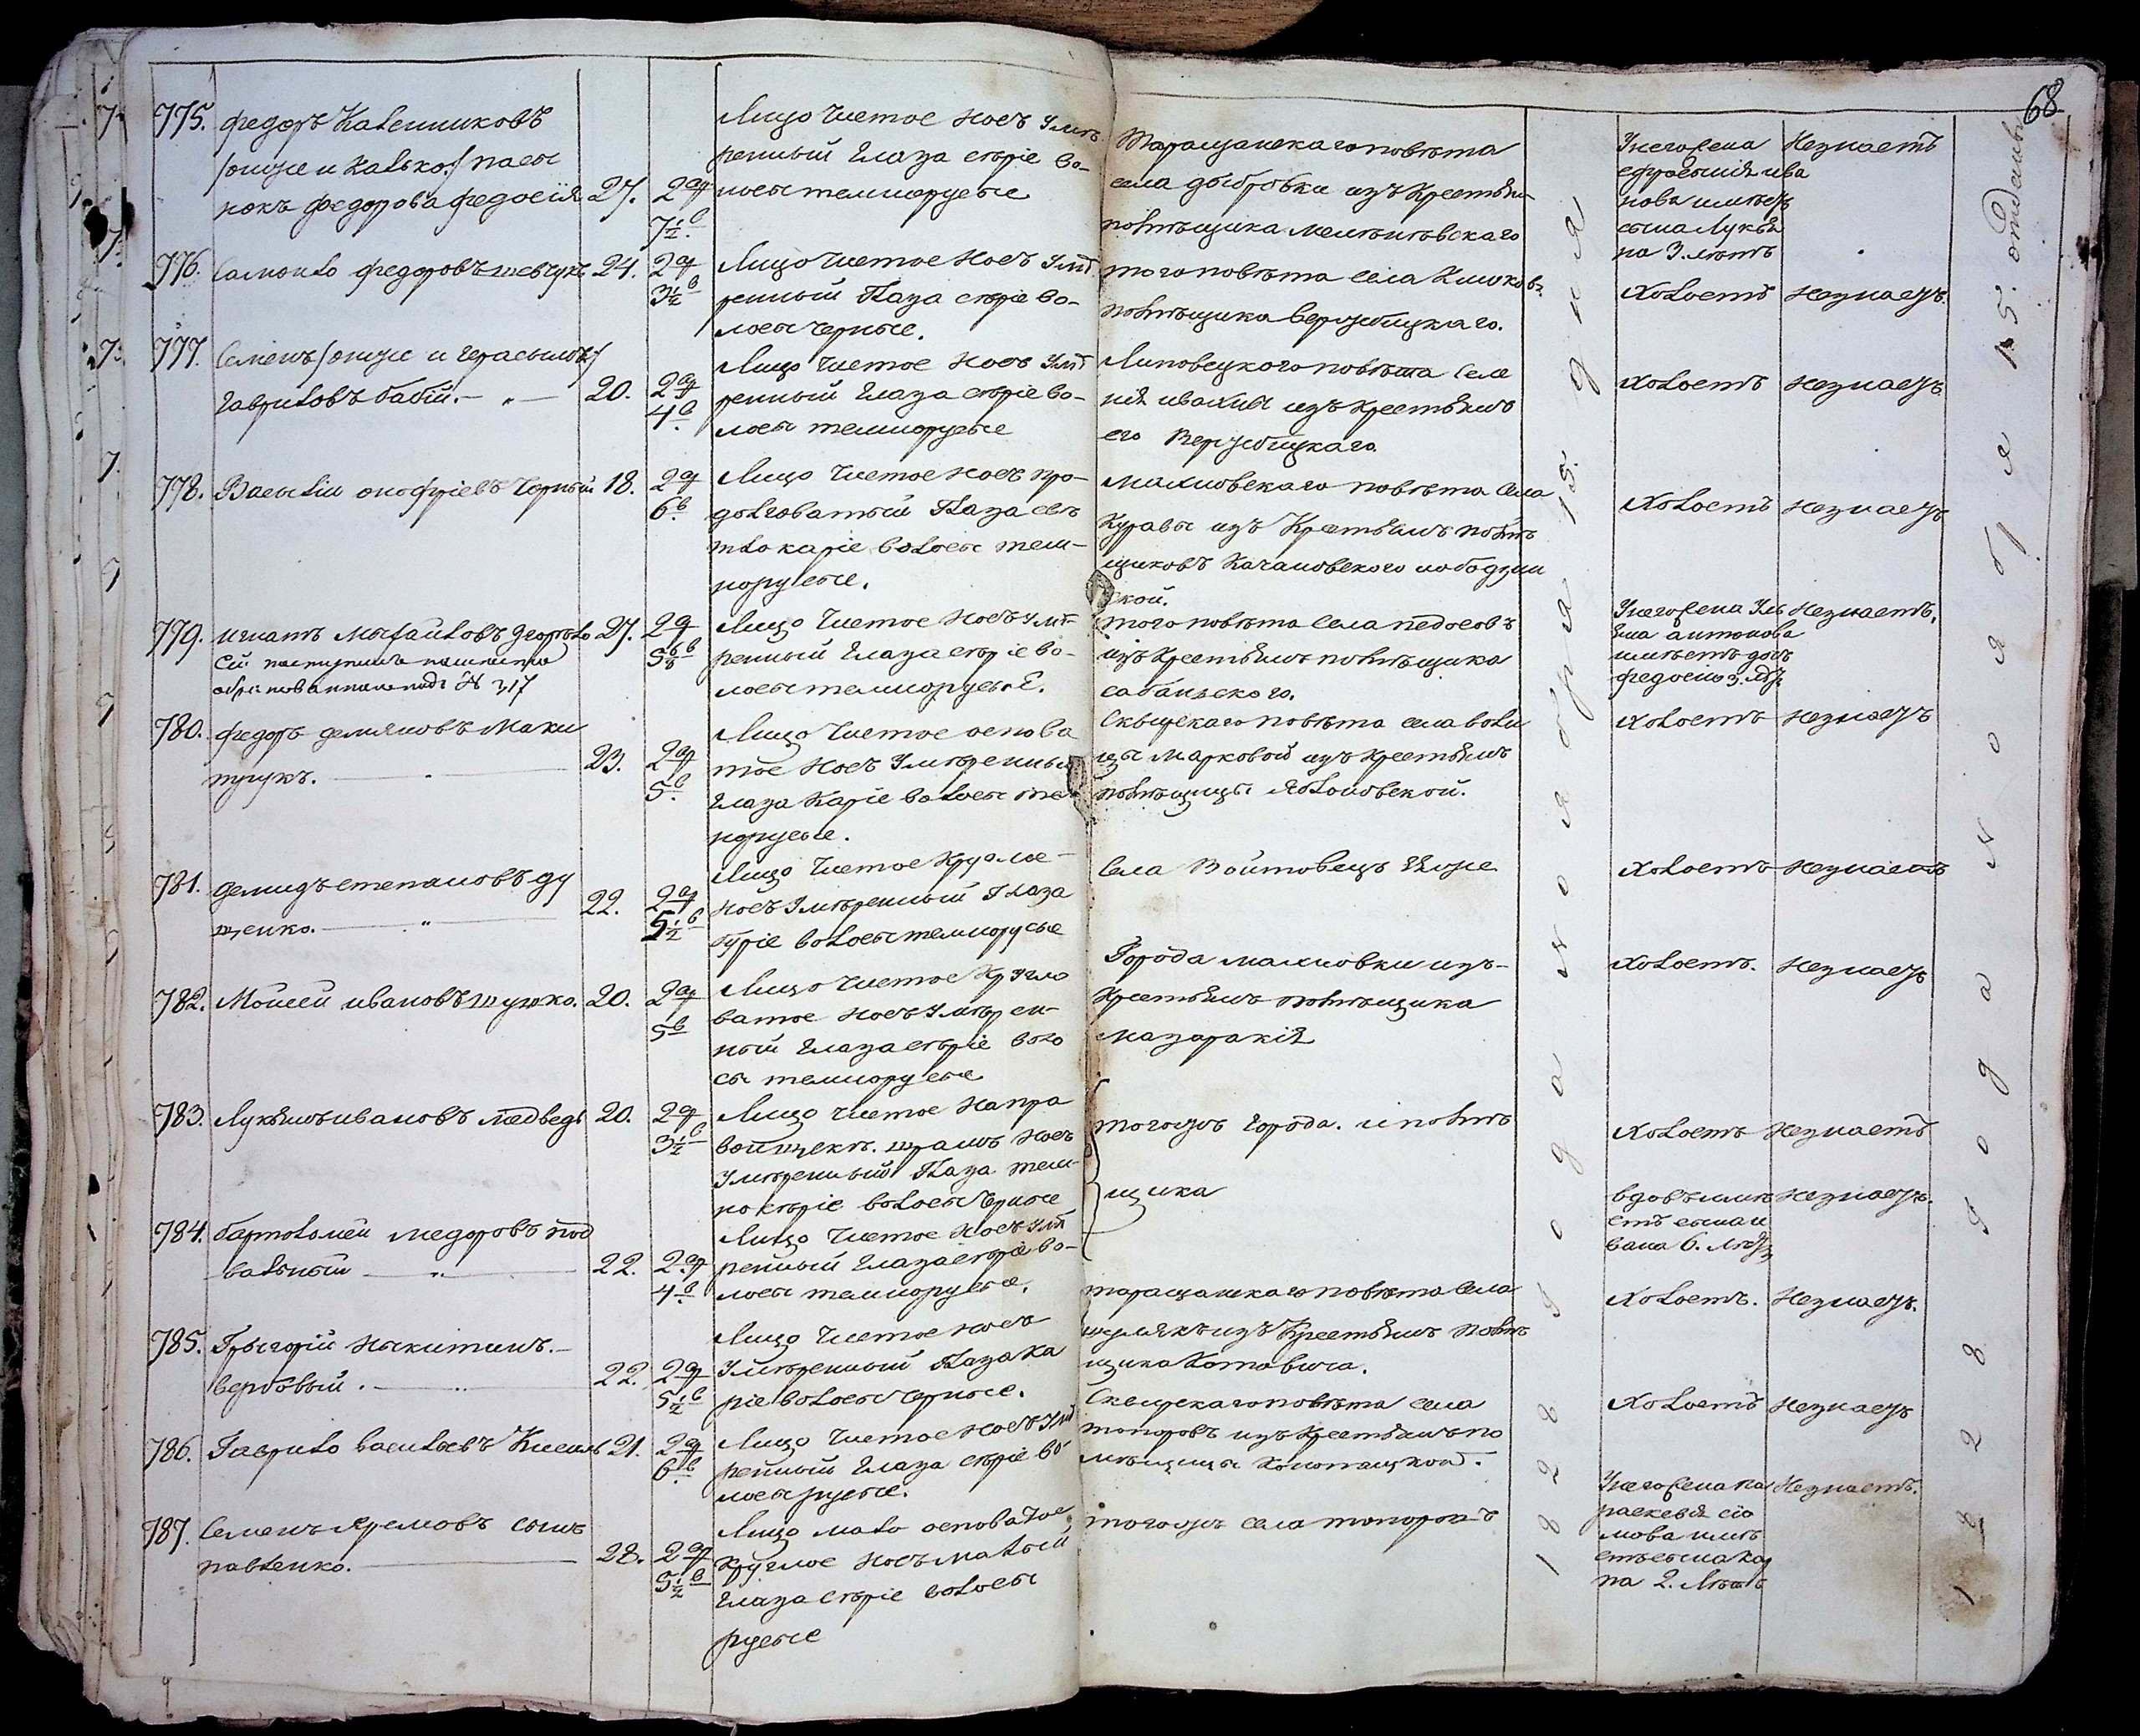 68
775. федоръ Каленниковъ
/онже и Калько/ пасы
нокъ федорова федосія 27. 2 а
7½ в
Лицо Чистое носъ Умѣ
ренный Глаза сѣріе во-
лосы темнорусые
Таращанскаго повѣта
села дыбровки изъ Крестьян
помѣщика
Унегожена
нова имѣетъ
сына Лукья
на 3. лѣтъ
Незнаетъ
776. Самойло федоровъ шевчукъ 24. 2 а
3½ в
Лицо Чистое Носъ Умѣ
ренный Глаза сѣріе во-
лосы черные.
того повѣта села
помѣщика Вержбицкаго.
Холостъ Незнаетъ.
777. Семенъ /онже и Герасымъ/
Гавриловъ бабій. — „ — 20. 2 а
4 в
Лицо Чистое Носъ Умѣ
ренный Глаза сѣріе во-
лосы темнорусые
Липовецкого повѣта Селе
нія ивахны изъ крестьянъ
его Вержбицкаго
Холостъ Незнаетъ.
778. Василій онофріевъ Чорный 18. 2 а
6 в
Лицо Чистое Носъ про-
долговатый Глаза свѣ
тло каріе волосы тем-
норусые.
Махновскаго повѣта Села
Журавы изъ Крестьянъ помѣ
щиковъ Качановского
ской.
Холостъ Незнаетъ
779. игнатъ Михайловъ 27. 2 а
Лицо Чистое Носъ умѣ
ренный Глаза сѣріе во-
лосы темнорусые.
того повѣта Села педосовъ
изъ Крестьянъ помѣщика
сабанского.
Унегожена Уль
яна антонова
имѣетъ дочь
федосию 3. лѣтъ
Незнаетъ.
780. федоръ демяновъ Маки
тучукъ. 23. 2 а
5 в
Лицо Чистое оспова
тое Носъ Умѣренный
Глаза Каріе волосы тем
норусые.
Сквирскаго повѣта села воли
цы Марковой изъ Крестьянъ
помѣщицы Яблоновской.
Холостъ Незнаетъ
781. демидъ степановъ ду
щенко. — „ — 22. 2 а
5½ в
Лицо Чистое Круглое
Носъ Умѣренный Глаза
буріе волосы темнорусые
Села Войтовецъ
Холостъ Незнаетъ
782. Мойсей ивановъ шушко. 20. 2 а
5 в
Лицо Чистое Кругло
ватое Носъ Умѣрен-
ный Глаза сѣріе воло
сы темнорусые
Города махновки изъ-
Крестьянъ помѣщика
Мазаракія
Холостъ. Незнаетъ
783. Лукьянъ ивановъ медведь 20. 2 а
3½ в
Лицо Чистое Направой щекѣ. шрамъ Носъ
Умѣренный Глаза тем-
но сѣріе волосы черные
тогожъ Города. и помѣ
щика
Холостъ Незнаетъ
784. бартоломей медоровъ под
вальный — „ — 22. 2 а
4 в
Лицо Чистое Носъ Умѣ
ренный Глаза сѣріе во-
лосы темнорусые.
вдовъ имѣ
етъ сына и
вана 6. лѣтъ
Незнаетъ.
785. Грыгорій Ныкитинъ. —
вербовый. — „ — 22. 2 а
5½ в
Лицо Чистое Носъ
Умѣренный Глаза Ка
ріе волосы черные.
таращанскаго повѣта Села
изъ Крестьянъ помѣ
щика Котовича.
Холостъ. Незнаетъ.
786. Гаврило васильевъ Кисиль 21. 2 а
6 в
Лицо Чистое Носъ Умѣ
ренный Глаза сѣріе во
лосы русые.
Сквирскаго повѣта села
топоровъ изъ Крестьянъ по
мѣщицы
Холостъ Незнаетъ
787. Семенъ Яремовъ сынъ
павленко. 28. 2 а
5½ в
Лицо мало осповатое,
Круглое Носъ малый
Глаза сѣріе волосы
русые
тогожъ села топоровъ
Унегожена Па
раскевія
мова имѣ
етъ сына Кар
па 2. лѣтъ
Незнаетъ.
1828 года Ноября 15. дня
1828 года Ноября 15.